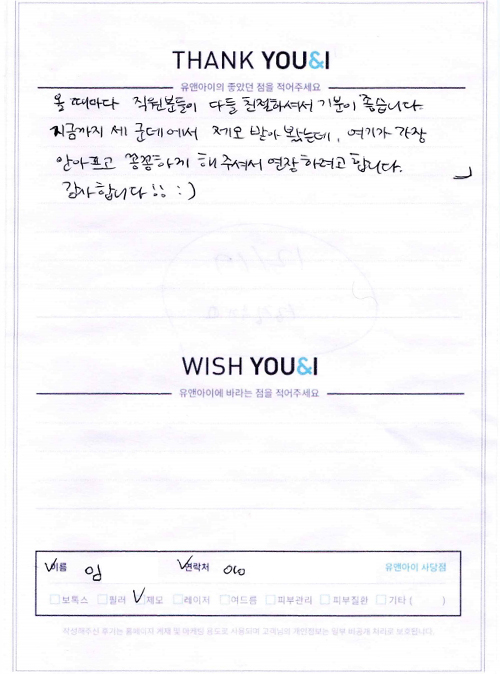 THANK YOU&I
유앤아이의 좋았던 점을 적어주세요
올 때마다 직원분들이 다들 친절하셔서 기분이 좋습니다
지금까지 세 군데에서 제모 받아 봤는데, 여기가 가장
안아프고 꼼꼼하게 해 주셔서 연장하려고 합니다.
감사합니다!! :)
WISH YOU&I
유앤아이에 바라는 점을 적어주세요
이름 임 연락처 010 유앤아이 사당점
보톡스 필러 제모 레이저 여드름 피부관리 피부질환 기타 ( )
작성해주신 후기는 홈페이지 게재 및 마케팅 용도로 사용되며 고객님의 개인정보는 일부 비공개 처리로 보호됩니다.